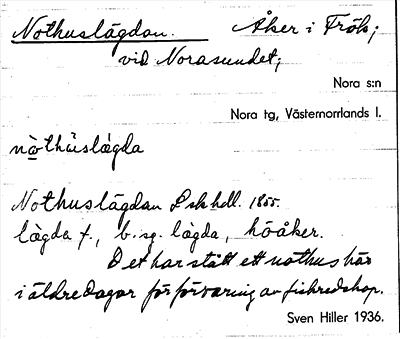 Nothuslägdan. Åker i Frök;
vid Norasundet;
Nora s:n
Nora tg, Västernorrlands l.
nòthùslǫgda
Nothuslägdan Lskhdl. 1855.
lägda f., b. sg. lägda, höåker.
Det har stått ett nothus här
i äldre dagar för förvaring av fiskredskap.
Sven Hiller 1936.